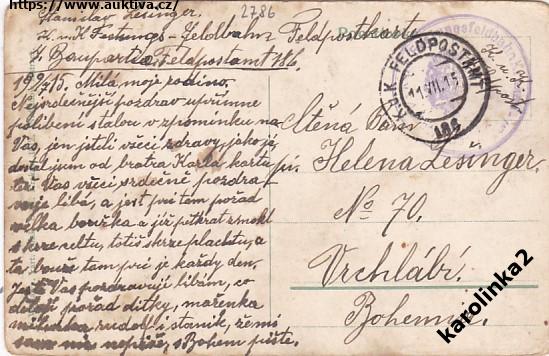 https://www.auktiva.cz/
2786
Stanislav Lešinger,
K. u. K. Festungs-Feldbahn Feldpostkarte
4 Baupartie, Feldpostamt 186.
19 9/7 15. Milá moje rodino,
Nejsrdečnější pozdrav upřímné
políbení stalou v zpomínku na
Vás, jen jsteli všeci zdravy, jako já,
dostal jsem od bratra Karla kartu
Vás všeci srdečně pozdra
vuje líbá, a jest pri tem pořad
velka bouřka a již petkrat zmokl
skrze celtu, totiš skrze plachtu, a
ta bouře tam prí je každy den.
Jeste Vas pozdravuji líbám, co
dělají pořad dítky, mařenka
rudolf i stanik,
nepíšé, s Bohem píšte.
K. u. K. FELDPOSTAMT
11.VII.15
186
Ctěná Paní
Pí. Helena Lešinger.
No 70.
Vrchlábí.
Bohemie.
karolinka2